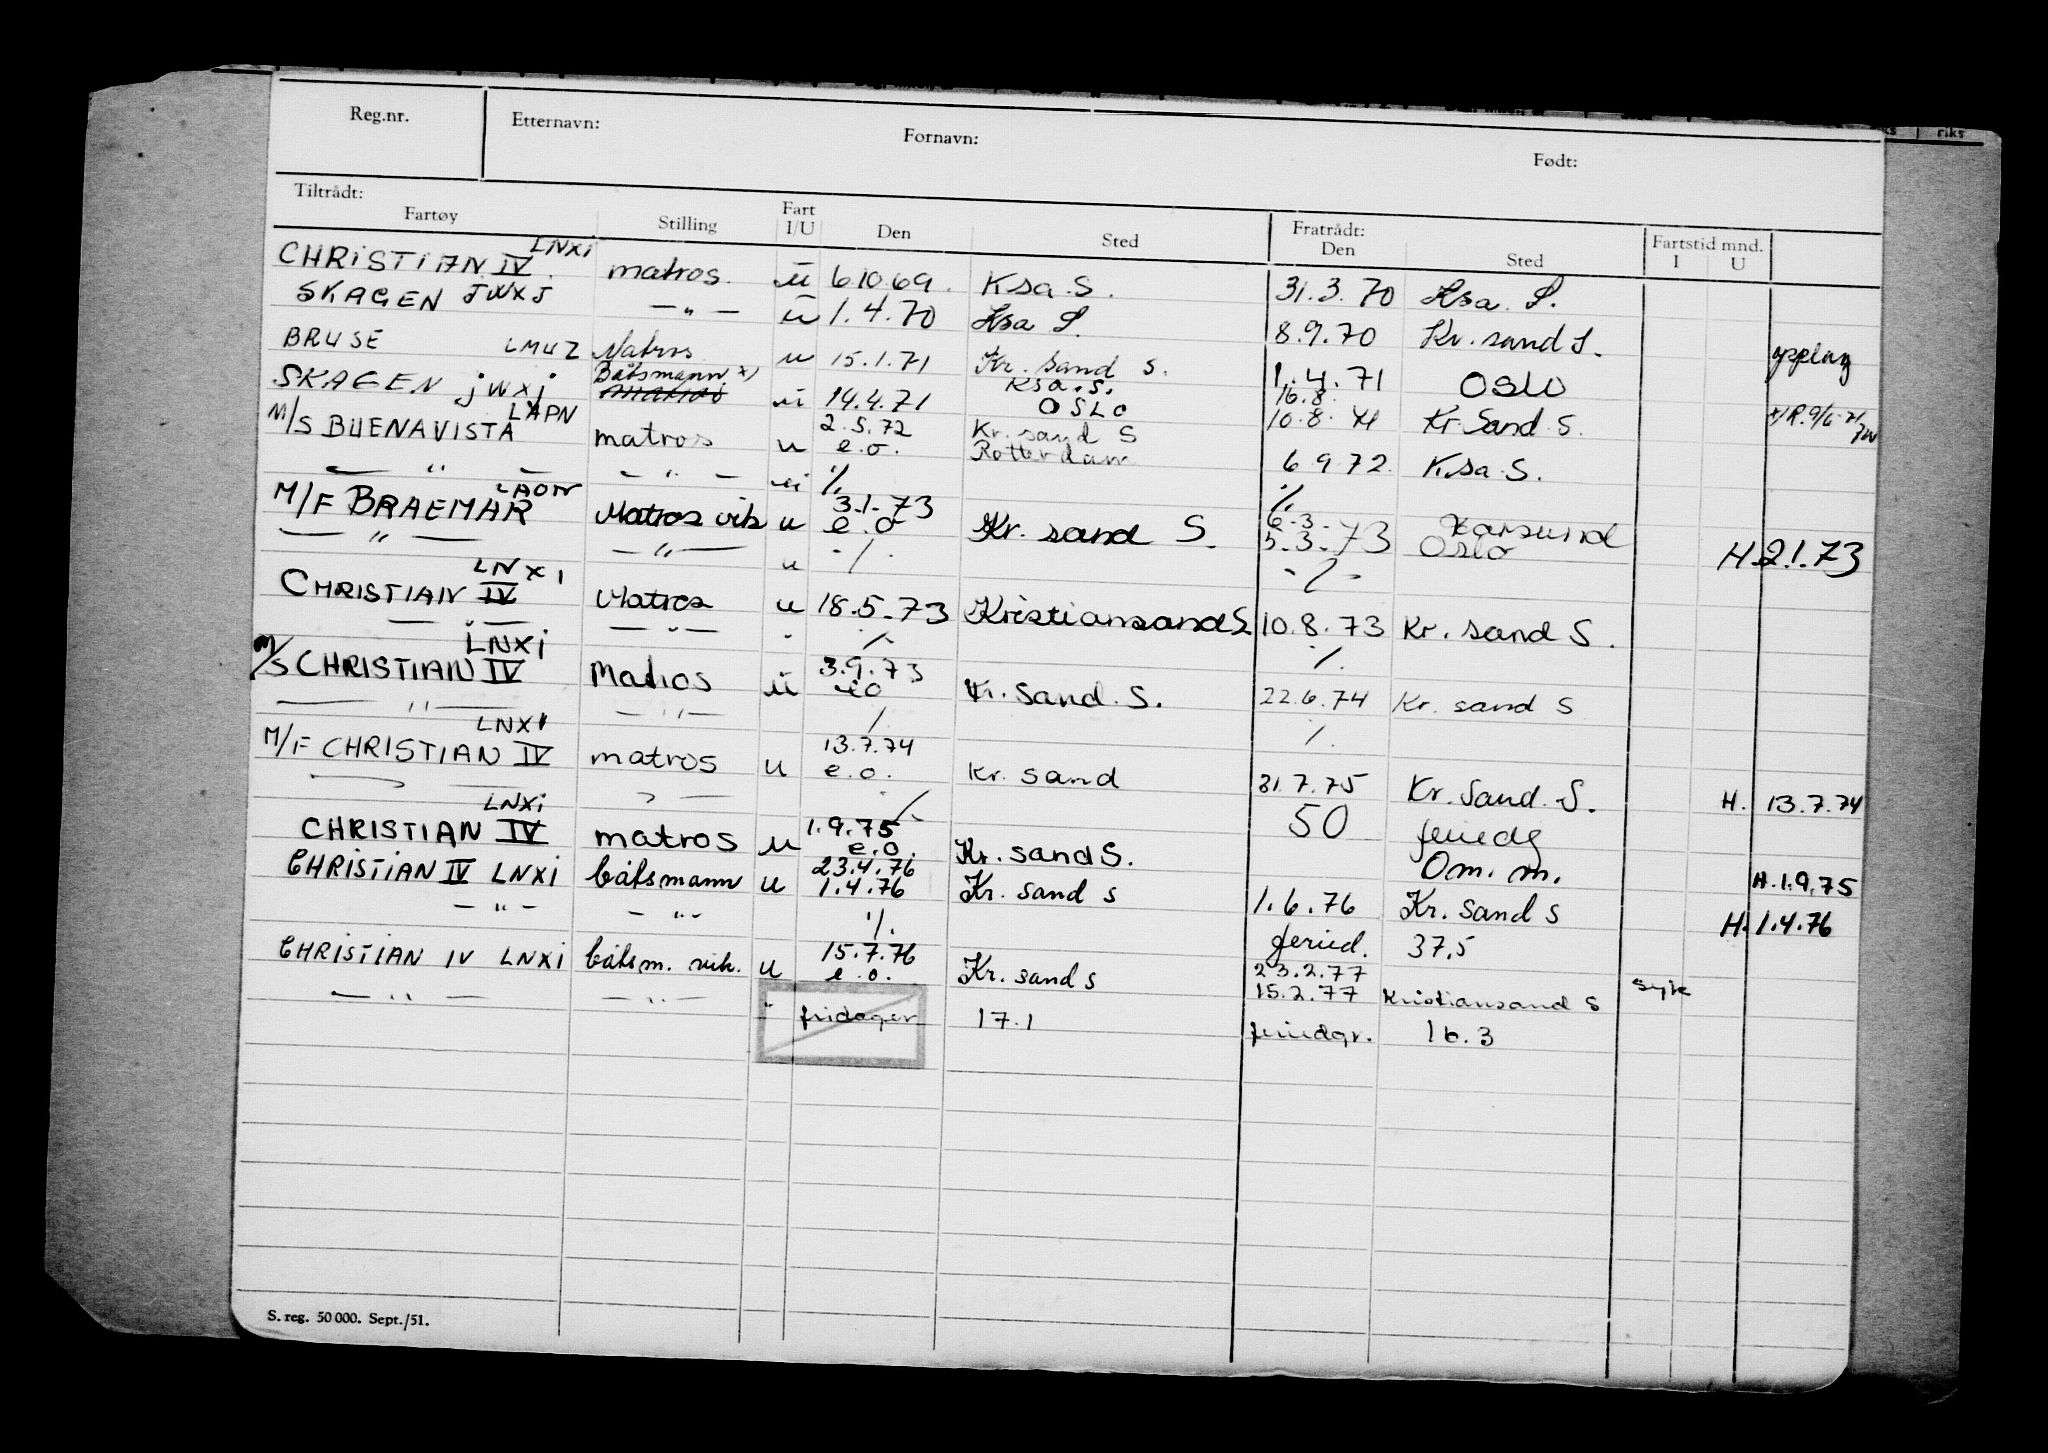 Reg.nr. Etternavn: Fornavn: Født:
Tiltrådt: Fartøy Stilling Fart I/U Den Sted Fratrådt: Den Sted Fartstid mnd. I U
CHRISTIAN IV LNXI matros. u 6.10.69. Ksa S. 31.3.70 Ksa. S.
SKAGEN JWXJ —"— u 1.4.70 Ksa S. 8.9.70 Kr. sand S.
BRUSE LMUZ Matros u 15.1.71 Kr. sand S. 1.4.71 OSLO opplag
Båtsmann x) Ksa. S. 16.8.
SKAGEN jwxj matros u 14.4.71 OSLO 10.8.71 Kr Sand S. x) R. 9/6-71
LAPN 2.5.72 Kr. sand S
M/S BUENAVISTA matros u e.o. Rotterdam 6.9.72. Ksa S.
— " — — " — u ./. ./.
LAON 3.1.73 6.3. Karsund
M/F BRAEMAR Matros vik u e.o Kr. sand S. 5.3.73 Oslo H.2.1.73
— " — — " — u -/. -/-
LNXI
CHRISTIAN IV Matros u 18.5.73 Kristiansand S 10.8.73 Kr. sand S.
— " — — " — " ./. ./.
LNXI 3.9.73
M/S CHRISTIAN IV Matros u eo Kr. Sand. S. 22.6.74 Kr. sand S
— " — — " — ./. ./.
LNXI 13.7.74
M/F CHRISTIAN IV matros u e.o. Kr. sand 31.7.75 Kr. Sand. S. H. 13.7.74
— " — — " — ./. 50 feriedg
LNXI 1.9.75
CHRISTIAN IV matros u e.o. Kr. sand S. Om. m. H.1.9.75
23.4.76
CHRISTIAN IV LNXI båtsmann u 1.4.76 Kr. sand s 1.6.76 Kr. Sand s H.1.4.76
— " — — " — ./. feried. 37,5
15.7.76 23.2.77
CHRISTIAN IV LNXI båtsm. vik. u e.o. Kr. sand s 15.2.77 Kristiansand S syk
— " — — " — " fridager 17.1 feriedgr. 16.3
S. reg. 50 000. Sept./51.
riks